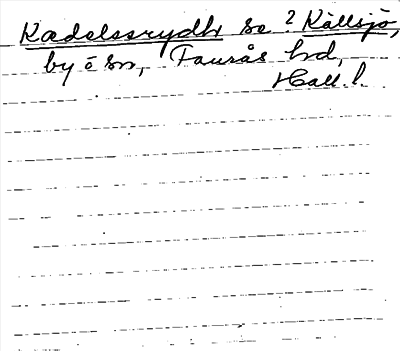 Kædelssrydh se ? Källsjö,
by ō sn, Faurås hd,
Hall. l.